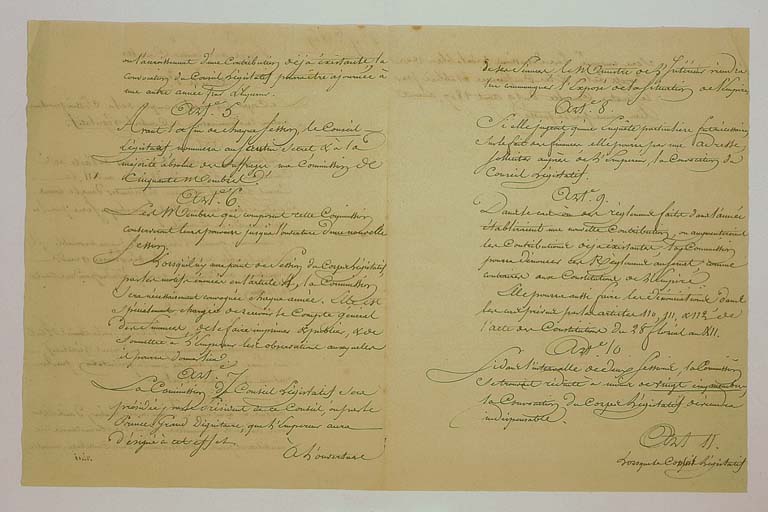 ou l'accroissement d'une Contribution déjà existante, la
convocation du Conseil Législatif pourra être ajournée à
une autre année
Art. 5.
Avant la fin de chaque Session, le Conseil
Législatif nommera au scrutin secret & à la
majorité absolue des suffrages une Commission de
Cinquante Membres.
Art. 6.
Les Membres qui composent cette Commission
conservent leurs pouvoirs jusqu'à l'ouverture d'une nouvelle
Session.
Lorsqu'il n'y aura point de Session du Corps Législatif
par les motifs énoncés en l'article 4, la Commission
sera nécessairement convoquée chaque année. Elle est
spécialement chargée de recevoir le Compte général
des finances, de le faire imprimer & publier, & de
soumettre à l'Empereur les observations auxquelles
il pourra donner lieu.
Art. 7.
La Commission du Conseil Législatif sera
présidée par le Président de ce Conseil ou par le
Prince Grand Dignitaire, que l'Empereur aura
désigné à cet effet.
À l'ouverture
des finances, le Ministre de l'Intérieur viendra
lui communiquer l'Exposé de la situation de l'Empire.
Art. 8.
Si elle jugeait qu'une Enquête particulière fut nécessaire
sur le fait des finances elle pourra par une adresse
solliciter auprès de l'Empereur, la Convocation du
Conseil Législatif.
Art. 9.
Dans le cas où des règlements faits dans l'année
établiraient une nouvelle Contribution, ou augmenteraient
les Contributions déjà existantes, la Commission
pourra dénoncer ces Règlements au Sénat comme
contraires aux Constitutions de l'Empire.
Elle pourra aussi faire les Dénonciations dans
les cas prévus par les articles 110, 111, & 112 de
l'acte des Constitutions du 28 floréal an XII.
Art. 10.
Si dans l'intervalle de deux Sessions, la Commission
se trouvait réduite à moins de vingt cinq membres,
la Convocation du Corps Législatif deviendra
indispensable.
Art. 11.
Lorsque le Corps Législatif